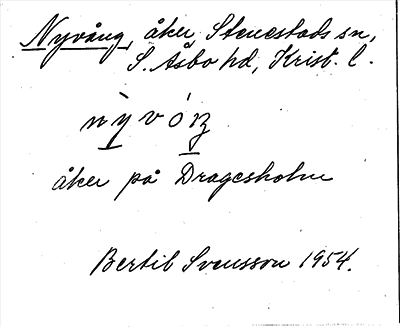 Nyvång, åker Stenestads sn,
S. Åsbo hd, Krist. l.
åker på Dragesholm
Bertil Svensson 1954.